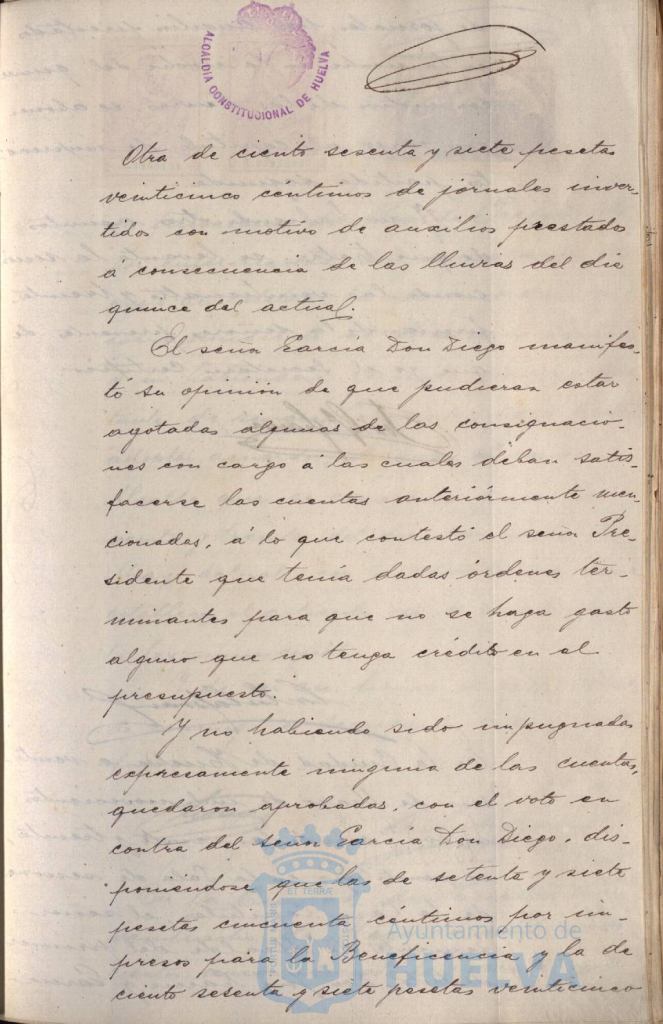 ALCALDIA CONSTITUCIONAL DE HUELVA
Otra de ciento sesenta y siete pesetas
veinticinco céntimos de jornales inver-
tidos con motivo de auxilios prestados
á consecuencia de las lluvias del dia
quince del actual.
El señor García Don Diego manifes-
tó su opinión de que pudieran estar
agotadas algunas de las consignacio-
nes con cargo á las cuales deban satis-
facerse las cuentas anteriormente men-
cionadas, á lo que contestó el señor Pre-
sidente que tenía dadas órdenes ter-
minantes para que no se haga gasto
alguno que no tenga crédito en el
presupuesto.
Y no habiendo sido impugnadas
expresamente ninguna de las cuentas,
quedaron aprobadas, con el voto en
contra del señor García Don Diego, dis-
poniéndose que las de setenta y siete
pesetas cincuenta céntimos por im-
presos para la Beneficencia y la de
ciento sesenta y siete pesetas veinticinco
Ayuntamiento de
HUELVA